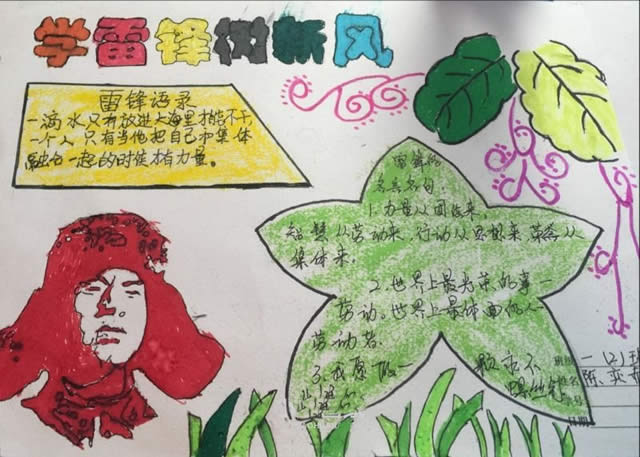 学雷锋树新风
雷锋语录
一滴水只有放进上海里才能不干,
一个人只有当他把自己和集体
融合一起的时候才有力量。
雷锋的
名言名句
1.力量从团结来,
智慧从劳动来,行动从思想来,荣誉从
集体来。
2.世界上最光荣的事一
劳动。世界上最体面的人一
劳动者。
3.我愿做一颗永不
螺丝钉
一(2)班
陈奕